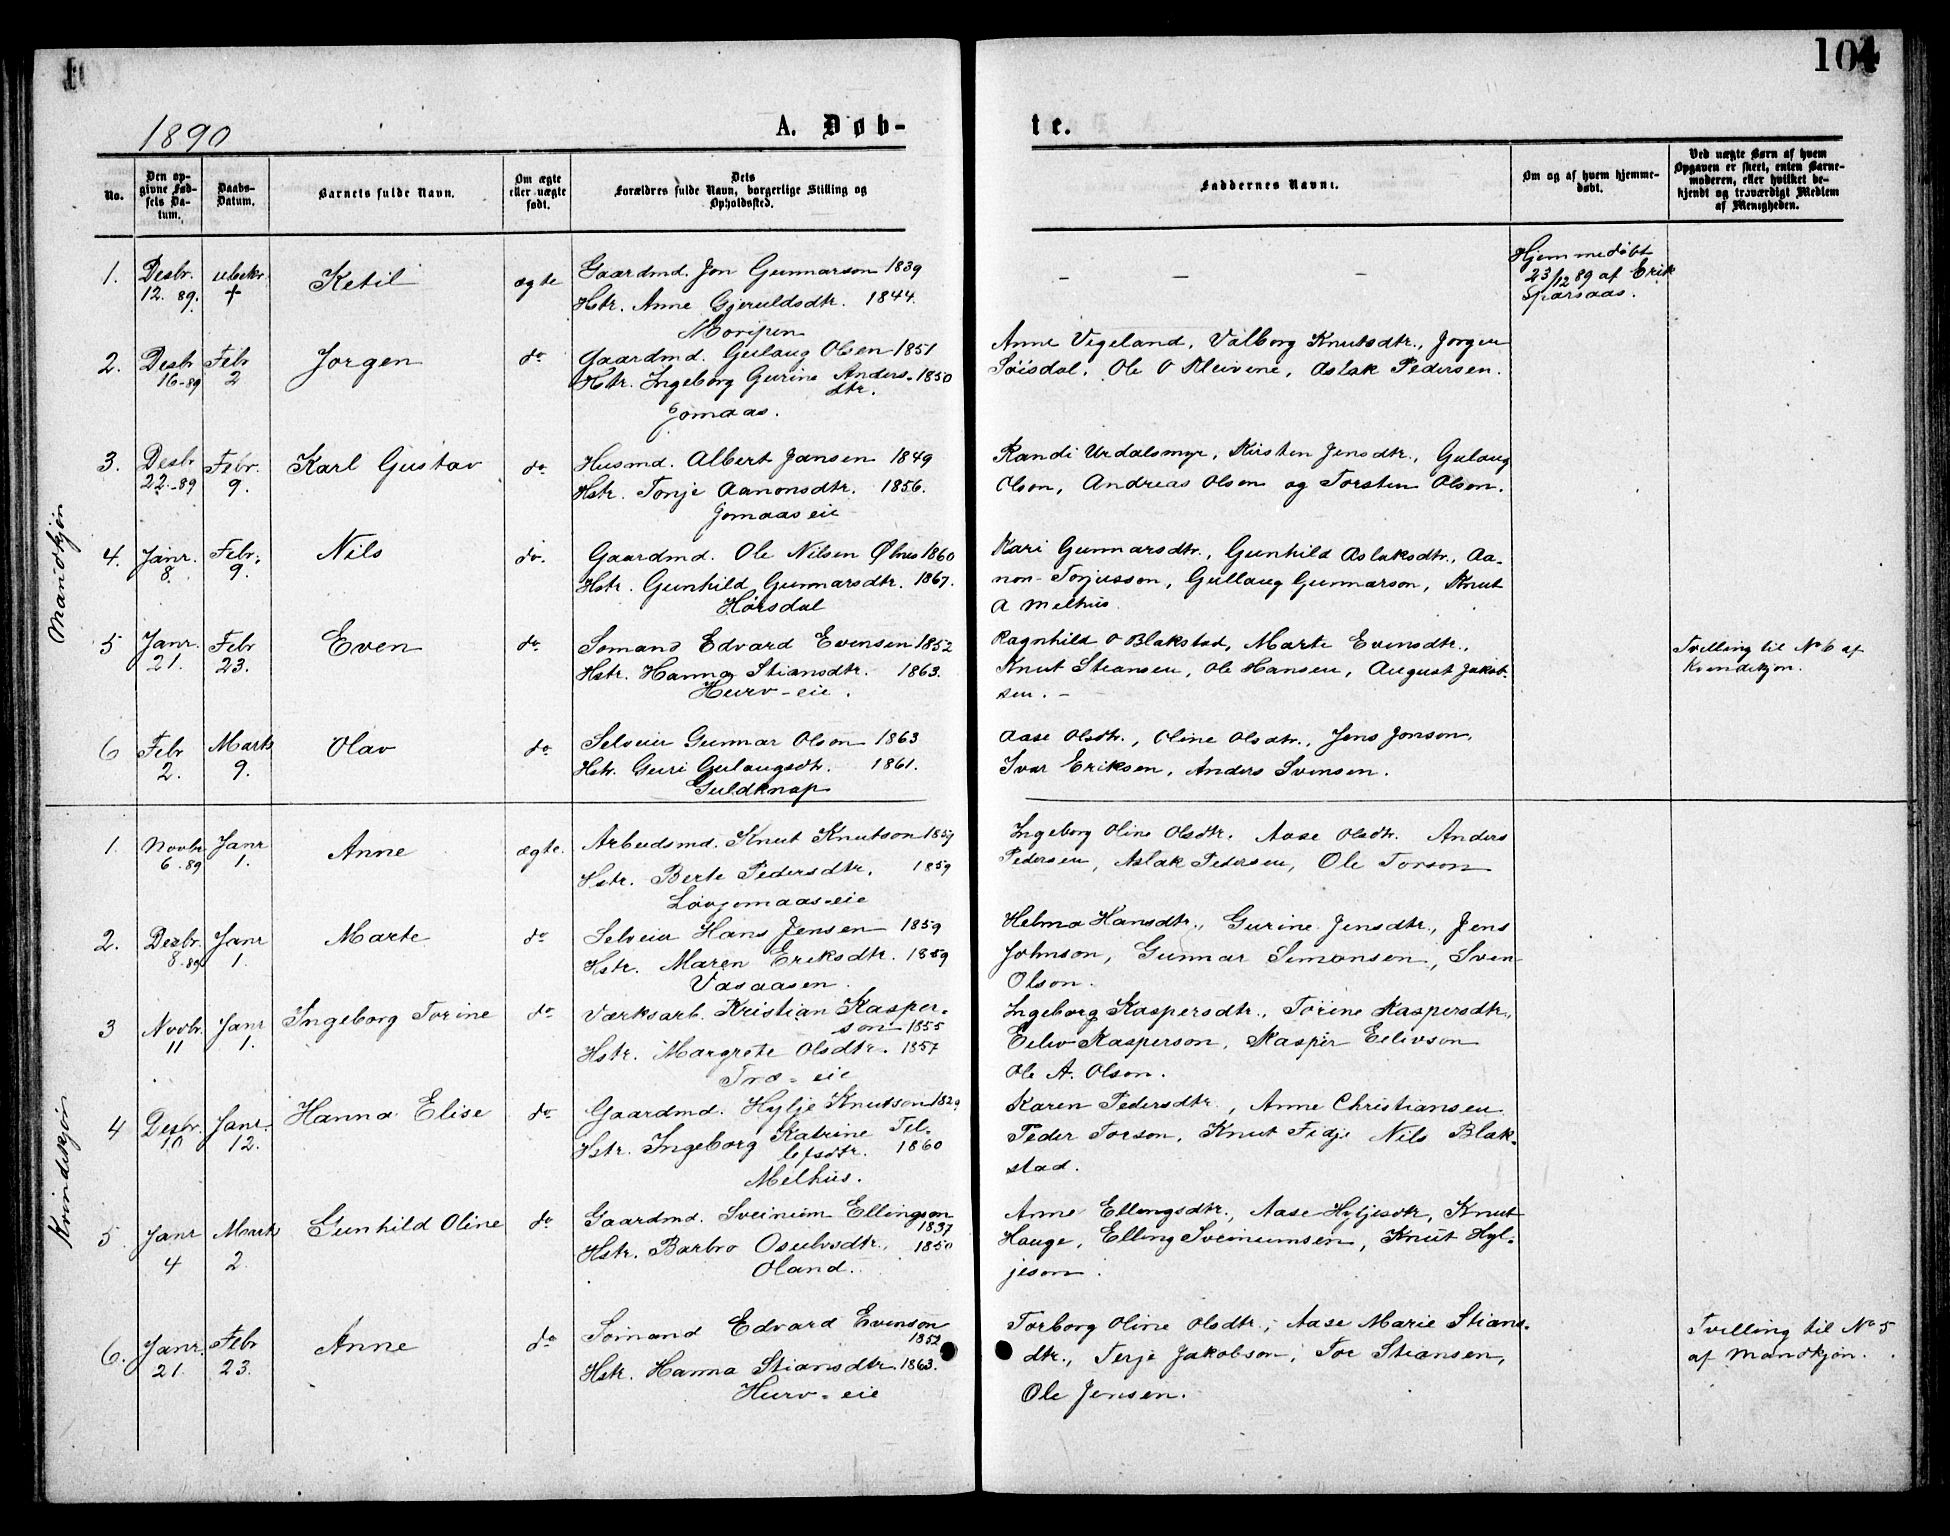 104
1890
A. Døb-
te.
No.
Den op-
givne Fød-
sels Da-
tum.
Daabs-
Datum.
Barnets fulde Navn.
Om ægte
eller uægte
født.
Dets
Forældres fulde Navn, borgerlige Stilling og
Opholdssted.
Faddernes Navne.
Om og af hvem hjemme-
døbt.
Ved uægte Børn af hvem
Opgaven er skeet, enten Barne-
moderen, eller hvilket be-
kjendt og troværdigt Medlem
af Menigheden.
Mandkjøn
1. Desbr. 12. 89. + Ketil ægte
Gaardmd. Jon Gunnarson 1839
Hstr. Anne Gjeruldsdtr. 1844.
Moripen
– – –
Hjemmedöbt
23/12 89 af Erik
Sparsaas.
2. Desbr 16-89 Febr 2 Jorgen do
Gaardmd. Gulaug Olsen 1851
Hstr. Ingeborg Gurine Anders- 1850
dtr.
Jomaas.
Anne Vegeland, Valborg Knutsdtr., Jorgen
Söisdal, Ole O Kleivene, Aslak Pedersen.
3. Desbr 22.-89 Febr. 9. Karl Gustav do
Husmd. Albert Jansen 1849
Hstr. Tonje Aanonsdtr. 1856.
Jomaas eie
Randi Urdalsmyr, Kirsten Jensdtr., Gulaug
Olson, Andreas Olson og Torsten Olson.
4. Janr. 8. Febr. 9. Nils do.
Gaardmd. Ole Nilsen Øbnes 1860
Hstr. Gunhild Gunnarsdtr. 1867.
Hörsdal
Kari Gunnarsdtr., Gunhild Aslaksdtr., Aa-
non Torjusson, Gullaug Gunnarson, Knut
A Melhus.
5 Janr. 21. Febr 23. Even do
Sömand Edvard Evensen 1852
Hstr. Hanna Stiansdtr. 1863.
Hurv-eie.
Ragnhild O Blakstad, Marte Evensdtr.,
Knut Stiansen, Ole Hansen, August Jakob-
sen. –
Tvilling til No 6 af
Kvindekjøn.
6 Febr 2. Marts 9. Olav do
Selveier Gunnar Olson 1863
Hstr. Guri Gulaugsdtr. 1861.
Guldknap
Aase Olsdtr., Oline Olsdtr., Jens Jonson,
Ivar Eriksen, Anders Svensen.
Kvindekjøn
1 Novbr 6-89 Janr 1. Anne ægte.
Arbeidsmd. Knut Knutson 1859
Hstr. Berte Pedersdtr. 1859
Lövjomaas-eie
Ingeborg Oline Olsdtr. Aase Olsdtr. Anders
Pedersen, Aslak Pedersen, Ole Torson
2. Desbr. 8-89 Janr 1. Marte do
Selveier Hans Jensen 1859
Hstr. Maren Eriksdtr. 1859
Vasaasen.
Helma Hansdtr., Gurine Jensdtr., Jens
Johnson, Gunnar Simonsen, Sven
Olson.
3 Novbr. 11 Janr 1. Ingeborg Torine do
Værksarb. Kristian Kasper-
son 1855
Hstr. Margrete Olsdtr. 1857
Træ-eie
Ingeborg Kaspersdtr., Torine Kaspersdtr.,
Eeliv Kasperson, Kasper Eelivson
Ole A. Olson.
4 Desbr. 10 Janr. 12. Hanna Elise do
Gaardmd. Hylje Knutson 1829
Hstr. Ingeborg Katrine Tel-
lefsdtr. 1860
Melhus.
Karen Pedersdtr, Anne Christiansen
Peder Torson, Knut Fidje Nils Blak-
stad.
5 Janr 4 Marts 2 Gunhild Oline do
Gaardmd. Sveinum Ellingson
1837
Hstr. Barbro Osulvsdtr. 1850
Oland.
Anne Ellingsdtr., Aase Hyljesdtr, Knut
Hauge, Elling Sveinumsen, Knut Hyl-
jeson.
6. Janr. 21. Febr 23. Anne do
Sömand Edvard Evenson
1852
Hstr. Hanna Stiansdtr. 1863.
Hurv-eie
Torborg Oline Olsdtr., Aase Marie Stians-
dtr., Terje Jakobson, Tor Stiansen,
Ole Jensen.
Tvilling til No 5
af Mandkjøn.